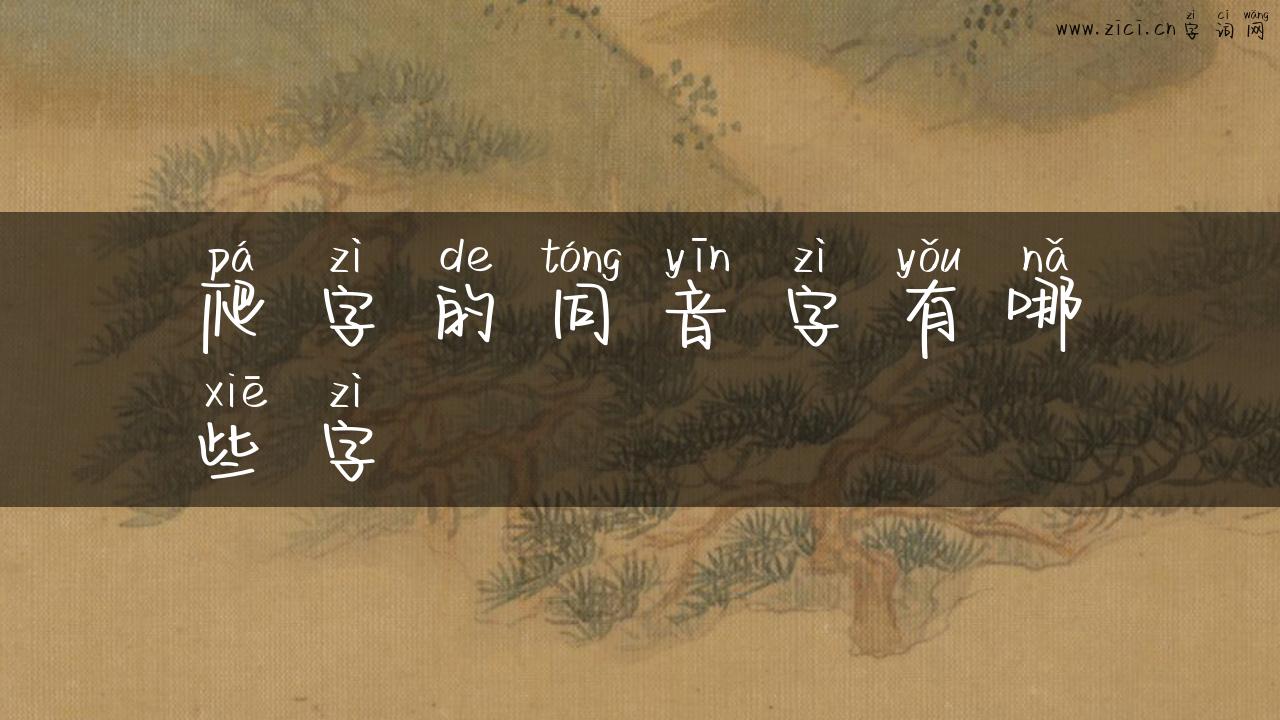 www.zīcī.cn zì cí wǎng
字词网
pá zì de tóng yīn zì yǒu nǎ
爬字的同音字有哪
xiē zì
些字